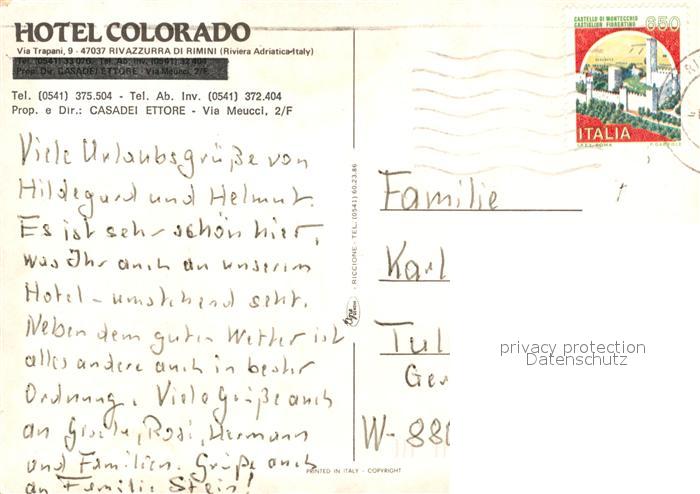 HOTEL COLORADO
Via Trapani, 9 - 47037 RIVAZZURRA DI RIMINI (Riviera Adriatica-Italy)
Prop. Dir. CASADEI ETTORE - Via Meucci, 2/F
Tel. (0541) 375.504 - Tel. Ab. Inv. (0541) 372.404
Prop. e Dir.: CASADEI ETTORE - Via Meucci, 2/F
Viele Urlaubsgrüße von
Hildegard und Helmut.
Es ist sehr schön hier,
was Ihr auch an unserem
Hotel - umstehend seht.
Neben dem guten Wetter ist
alles andere auch in bester
Ordnung. Viele Grüße auch
an Gisela, Rosi, Hermann
und Familien. Grüße auch
an Familie Stein!
- RICCIONE - TEL. (0541) 60.23.86
PRINTED IN ITALY - COPYRIGHT
CASTELLO DI MONTECCHIO
CASTIGLION FIORENTINO
650
ITALIA
I.P.Z.S. ROMA
Familie
Karl
Tul
Ger
W-880
privacy protection
Datenschutz